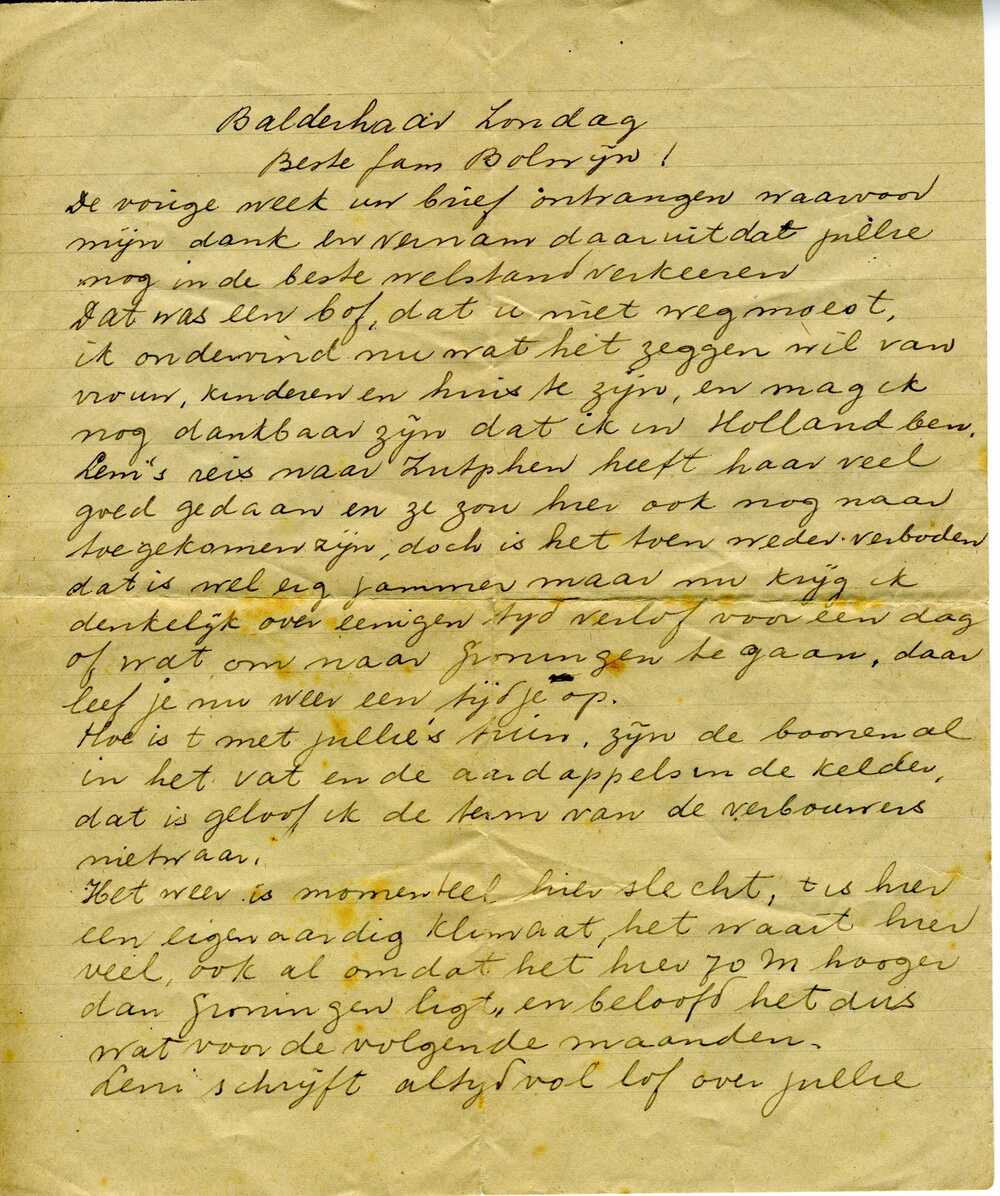 Balderhaar Zondag
Beste fam Bolwijn!
De vorige week uw brief ontvangen waarvoor
mijn dank en vernam daaruit dat jullie
nog in de beste welstand verkeeren
Dat was een bof, dat u niet weg moest,
ik ondervind nu wat het zeggen wil van
vrouw, kinderen en huis te zijn, en mag ik
nog dankbaar zijn dat ik in Holland ben.
Leni's reis naar Zutphen heeft haar veel
goed gedaan en ze zou hier ook nog naar
toegekomen zijn, doch is het toen weder verboden
dat is wel erg jammer maar nu krijg ik
denkelijk over eenigen tijd verlof voor een dag
of wat om naar Groningen te gaan, daar
leef je nu weer een tijdje op.
Hoe is t met jullie's tuin, zijn de boonen al
in het vat en de aardappels in de kelder,
dat is geloof ik de term van de verbouwers
nietwaar.
Het weer is momenteel hier slecht, t is hier
een eigenaardig klimaat, het waait hier
veel, ook al omdat het hier 70 M hooger
dan Groningen ligt, en beloofd het dus
wat voor de volgende maanden.
Leni schrijft altijd vol lof over jullie